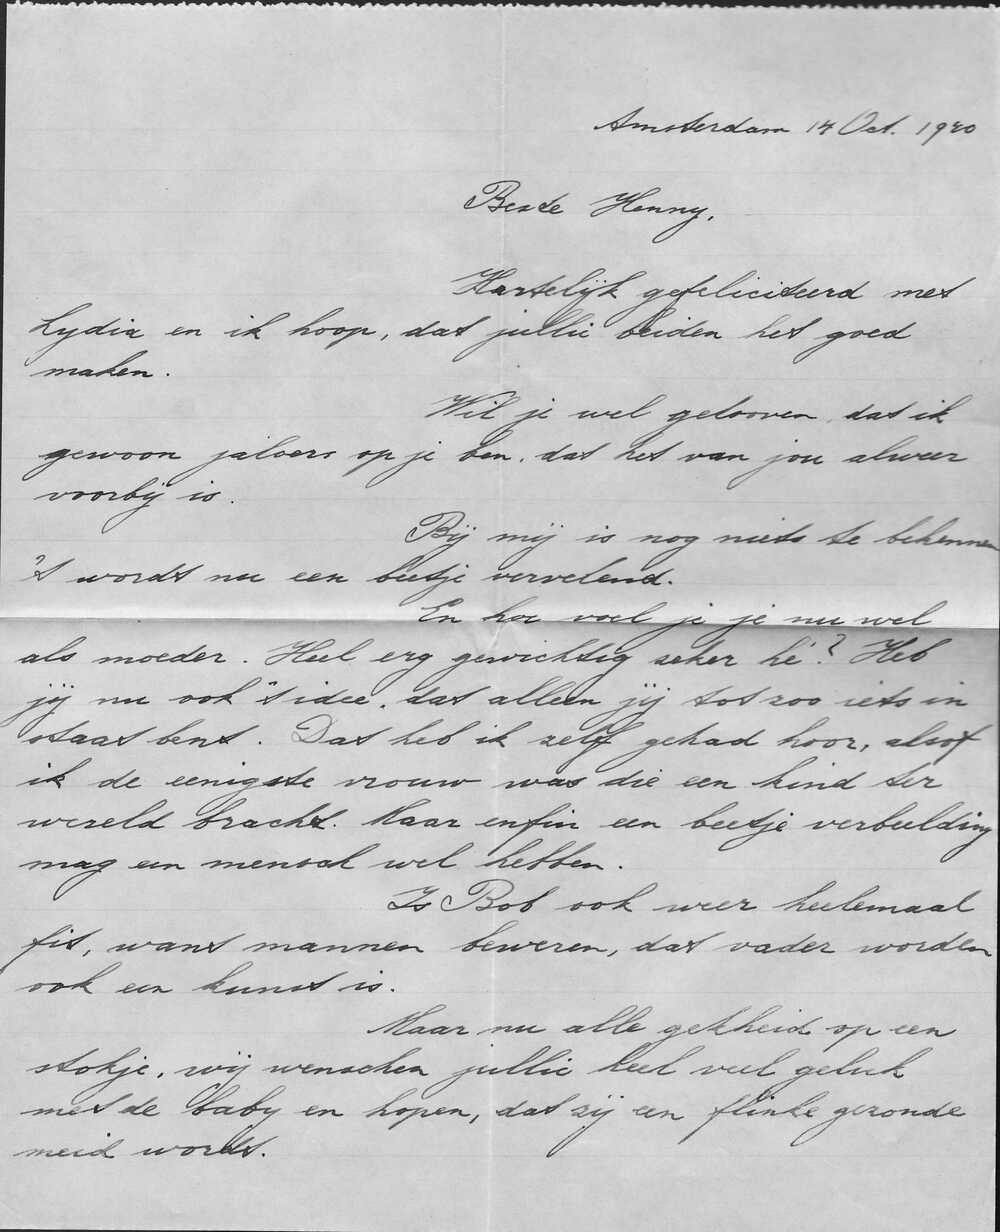 Amsterdam 14 Oct. 1940
Beste Henny,
Hartelijk gefeliciteerd met
Lydia en ik hoop, dat jullie beiden het goed
maken.
Wil je wel gelooven, dat ik
gewoon jaloers op je ben, dat het van jou alweer
voorbij is.
Bij mij is nog niets te bekennen
't wordt nu een beetje vervelend.
En hoe voel je je nu wel
als moeder. Heel erg gewichtig zeker hè? Heb
jij nu ook 't idee, dat alleen jij tot zoo iets in
staat bent. Dat heb ik zelf gehad hoor, alsof
ik de eenigste vrouw was die een kind ter
wereld bracht. Maar enfin een beetje verbeelding
mag een mensch wel hebben.
Is Bob ook weer heelemaal
fit, want mannen beweren, dat vader worden
ook een kunst is.
Maar nu alle gekheid op een
stokje, wij wenschen jullie heel veel geluk
met de baby en hopen, dat zij een flinke gezonde
meid wordt.